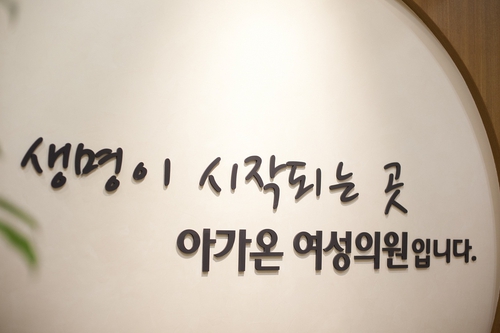 생명이 시작되는 곳
아가온 여성의원입니다.